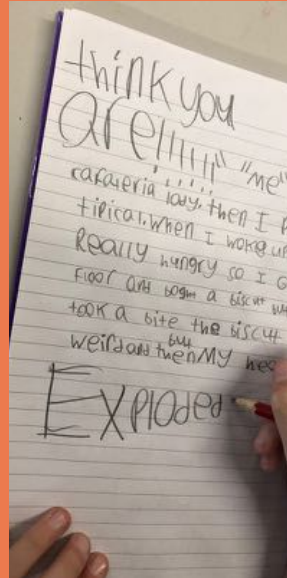 think you
are!!!!!!" "me"
cafateria lady. then I
tipical. when I woke up
Really hungry so I
Floor and a biscut
took a bite the biscut
weird and then My
Exploded